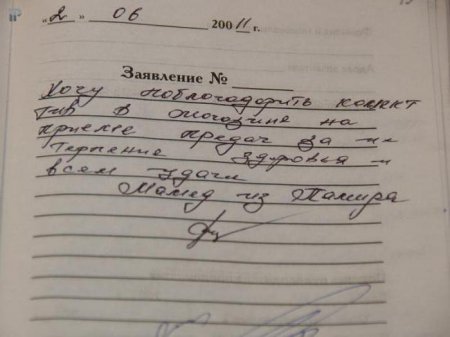 „2" 06 200 11 г.
Заявление №
Хочу поблогадорить коллект
тив в могозине на
приеме предач за их
терпение здоровья и
всем удачи
Мамед из Памира